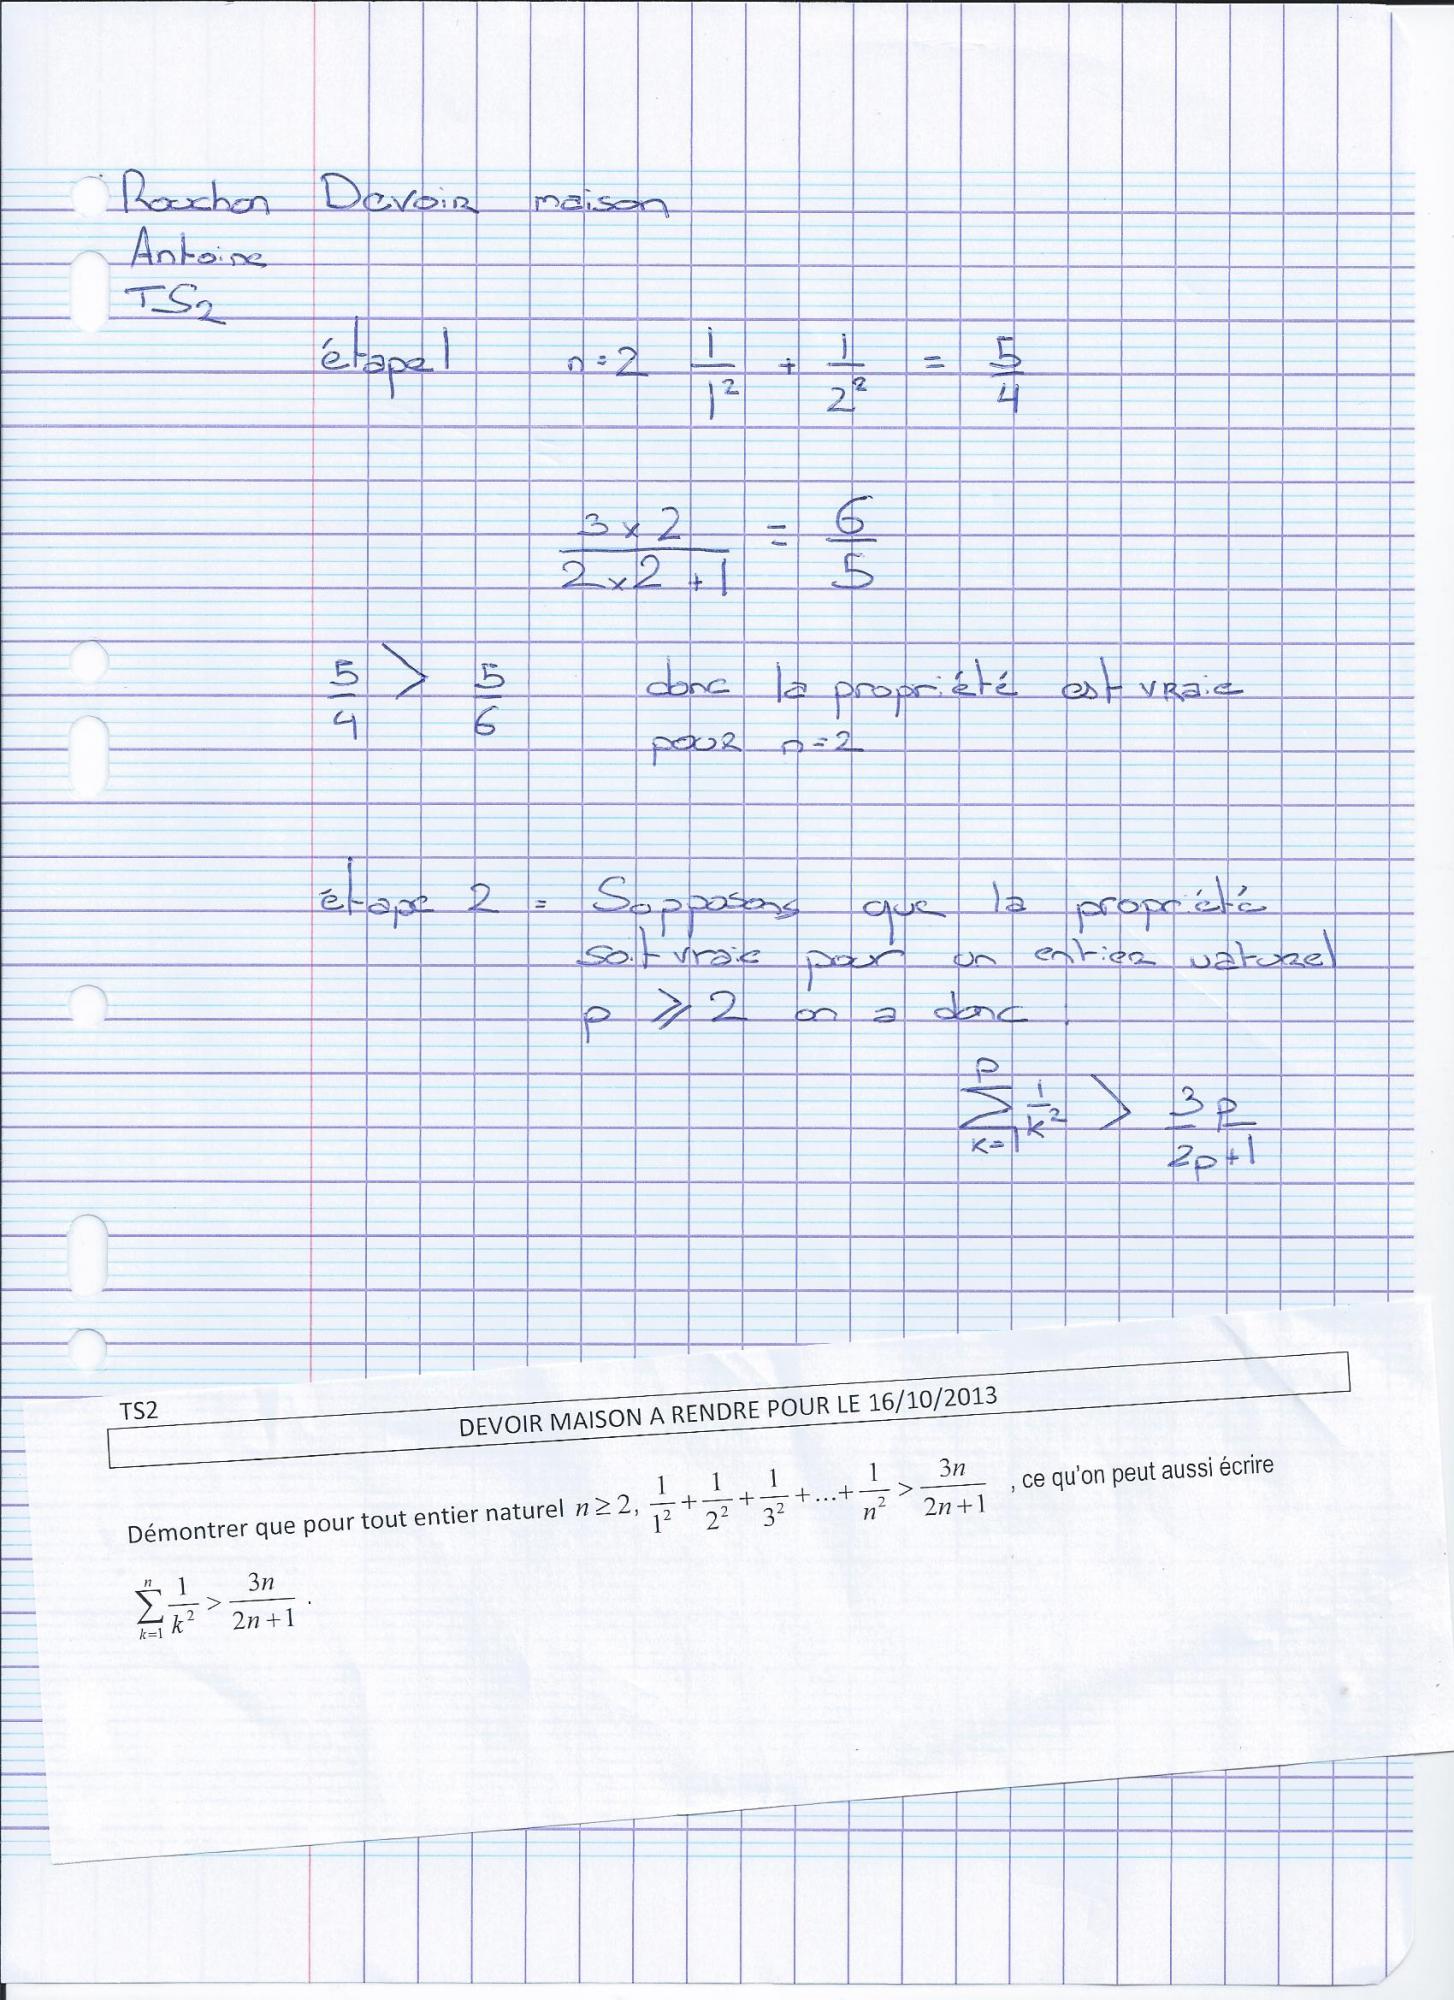 Rouchon Devoir maison
Antoine
TS2
étape 1 n = 2 1/1² + 1/2² = 5/4
3 x 2 / 2 x 2 + 1 = 6/5
5/4 > 5/6 donc la propriété est vraie
pour n = 2
étape 2 = Sopposons que la propriété
soit vraie pour un entier naturel
p ⩾ 2 on a donc :
∑ k=1 p 1/k² > 3p/2p+1
TS2
DEVOIR MAISON A RENDRE POUR LE 16/10/2013
Démontrer que pour tout entier naturel n ≥ 2, 1/1² + 1/2² + 1/3² + ... + 1/n² > 3n/2n+1 , ce qu'on peut aussi écrire
∑ k=1 n 1/k² > 3n/2n+1 .